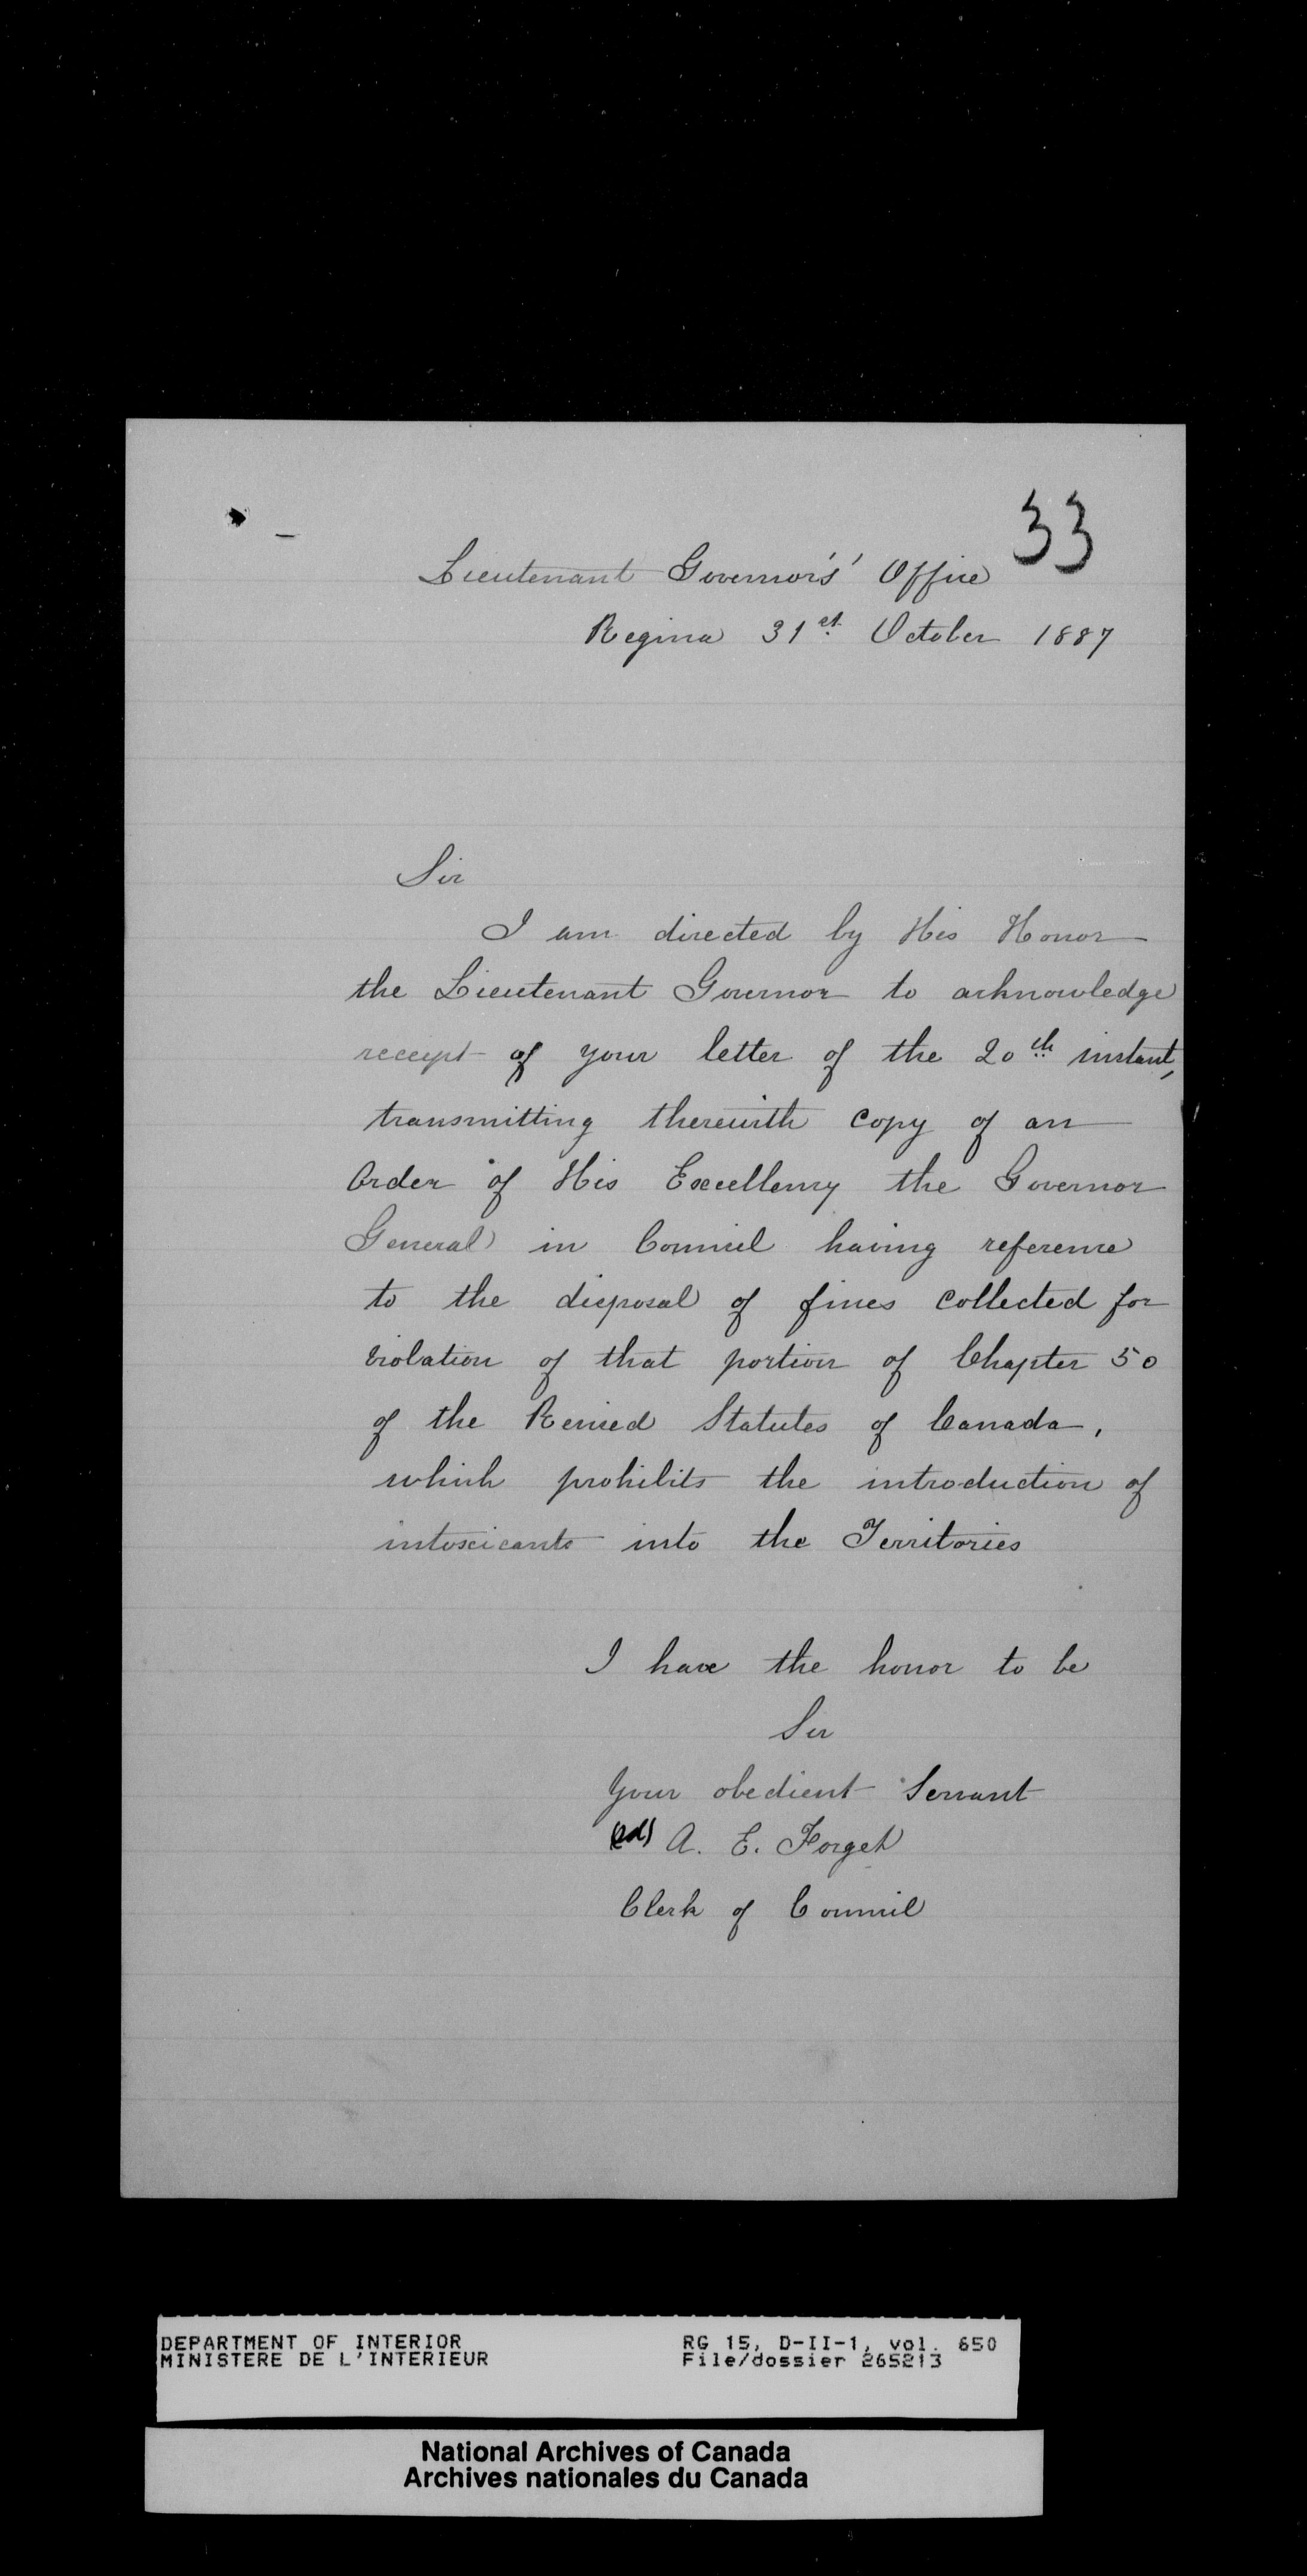 33
Lieutenant Governor's' Office
Regina 31st October 1887
Sir
I am directed by His Honor
the Lieutenant Governor to acknowledge
receipt of your letter of the 20th instant,
transmitting therewith copy of an
Order of His Excellency the Governor
General in Council having reference
to the disposal of fines collected for
violation of that portion of Chapter 50
of the Revised Statutes of Canada,
which prohibits the introduction of
intoxicants into the Territories
I have the honor to be
Sir
Your obedient Servant
(sd) A. E. Forget
Clerk of Council
DEPARTMENT OF INTERIOR RG 15, D-II-1, vol. 650
MINISTERE DE L'INTERIEUR File/dossier 265213
National Archives of Canada
Archives nationales du Canada